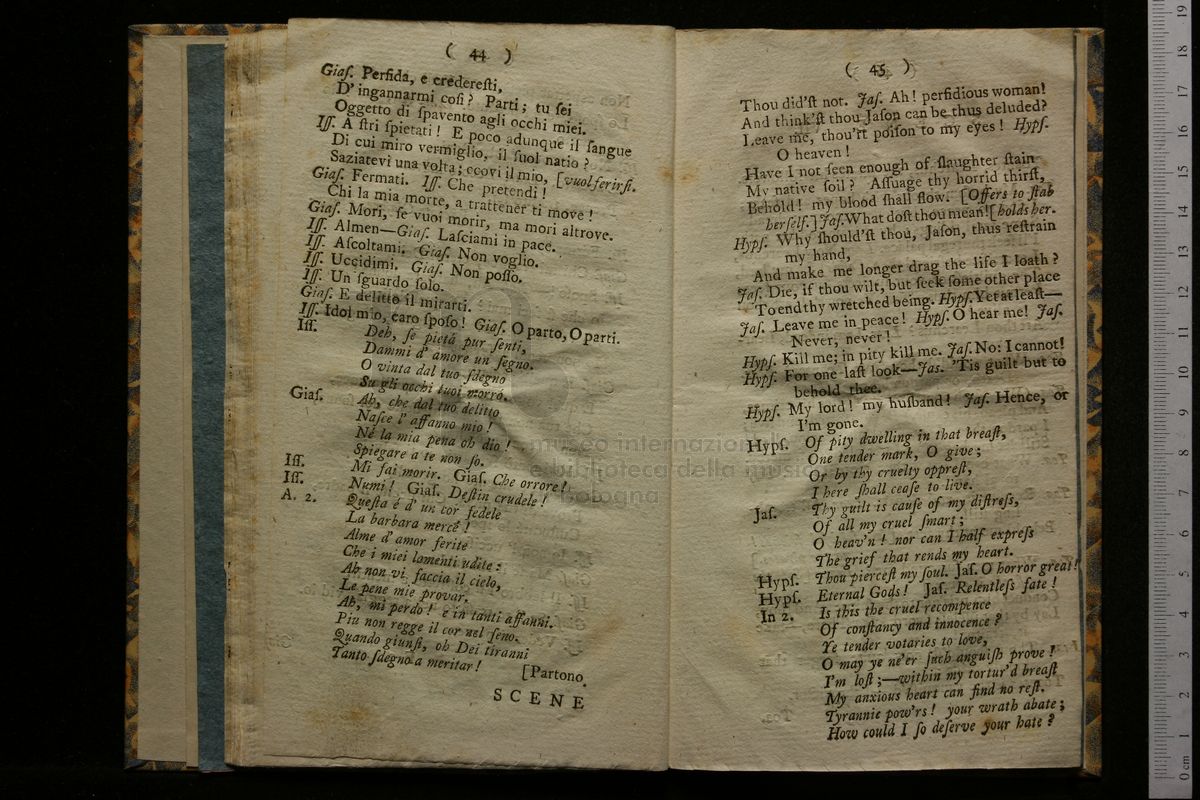 ( 44 )
Giaſ. Perfida, e credereſti,
D' ingannarmi coſi? Parti; tu ſei
Oggetto di ſpavento agli occhi miei.
Iſſ. A ſtri ſpietati! E poco adunque il ſangue
Di cui miro vermiglio, il ſuol natio?
Saziatevi una volta; eccovi il mio, [vuol ferirſi.
Giaſ. Fermati. Iſſ. Che pretendi!
Chi la mia morte, a trattener ti move!
Giaſ. Mori, ſe vuoi morir, ma mori altrove.
Iſſ. Almen—Giaſ. Laſciami in pace.
Iſſ. Aſcoltami. Giaſ. Non voglio.
Iſſ. Uccidimi. Giaſ. Non poſſo.
Iſſ. Un ſguardo ſolo.
Giaſ. E delitto il mirarti.
Iſſ. Idol mio, caro ſpoſo! Giaſ. O parto, O parti.
Iſſ. Deh, ſe pietá pur ſenti,
Dammi d' amore un ſegno.
O vinta dal tuo ſdegno
Su gli occhi tuoi morró.
Giaſ. Ah, che dal tuo delitto
Naſce l' affanno mio!
Né la mia pena oh dio!
Spiegare a te non ſo.
Iſſ. Mi fai morir. Giaſ. Che orrore!
Iſſ. Numi! Giaſ. Deſtin crudele!
A. 2. Queſta é d' un cor fedele
La barbara mercé!
Alme d' amor ferite
Che i miei lamenti udite:
Ah non vi faccia il cielo,
Le pene mie provar.
Ah, mi perdo! e in tanti affanni.
Piu non regge il cor nel ſeno.
Quando giunſi, oh Dei tiranni
Tanto ſdegno a meritar!
[Partono.
SCENE
( 45 )
Thou did'ſt not. Jaſ. Ah! perfidious woman!
And think'ſt thou Jaſon can be thus deluded?
Leave me, thou'rt poiſon to my eyes! Hypſ.
O heaven!
Have I not ſeen enough of ſlaughter ſtain
My native ſoil? Aſſuage thy horrid thirſt,
Behold! my blood ſhall flow. [Offers to ſtab
herſelf.] Jaſ. What doſt thou mean! [holds her.
Hypſ. Why ſhould'ſt thou, Jaſon, thus reſtrain
my hand,
And make me longer drag the life I loath?
Jaſ. Die, if thou wilt, but ſeek ſome other place
To end thy wretched being. Hypſ. Yet at leaſt—
Jaſ. Leave me in peace! Hypſ. O hear me! Jaſ.
Never, never!
Hypſ. Kill me; in pity kill me. Jaſ. No: I cannot!
Hypſ. For one laſt look—Jas. 'Tis guilt but to
behold thee.
Hypſ. My lord! my huſband! Jaſ. Hence, or
I'm gone.
Hypſ. Of pity dwelling in that breaſt,
One tender mark, O give;
Or by thy cruelty oppreſt,
I here ſhall ceaſe to live.
Jaſ. Thy guilt is cauſe of my diſtreſs,
Of all my cruel ſmart;
O heav'n! nor can I half expreſs
The grief that rends my heart.
Hypſ. Thou pierceſt my ſoul. Jaſ. O horror great!
Hypſ. Eternal Gods! Jaſ. Relentleſs fate!
In 2. Is this the cruel recompence
Of conſtancy and innocence?
Ye tender votaries to love,
O may ye ne'er ſuch anguiſh prove!
I'm loſt;—within my tortur'd breaſt
My anxious heart can find no reſt.
Tyrannic pow'rs! your wrath abate;
How could I ſo deſerve your hate?
museo internazionale
e biblioteca della musica
bologna
0 cm 1 2 3 4 5 6 7 8 9 10 11 12 13 14 15 16 17 18 19